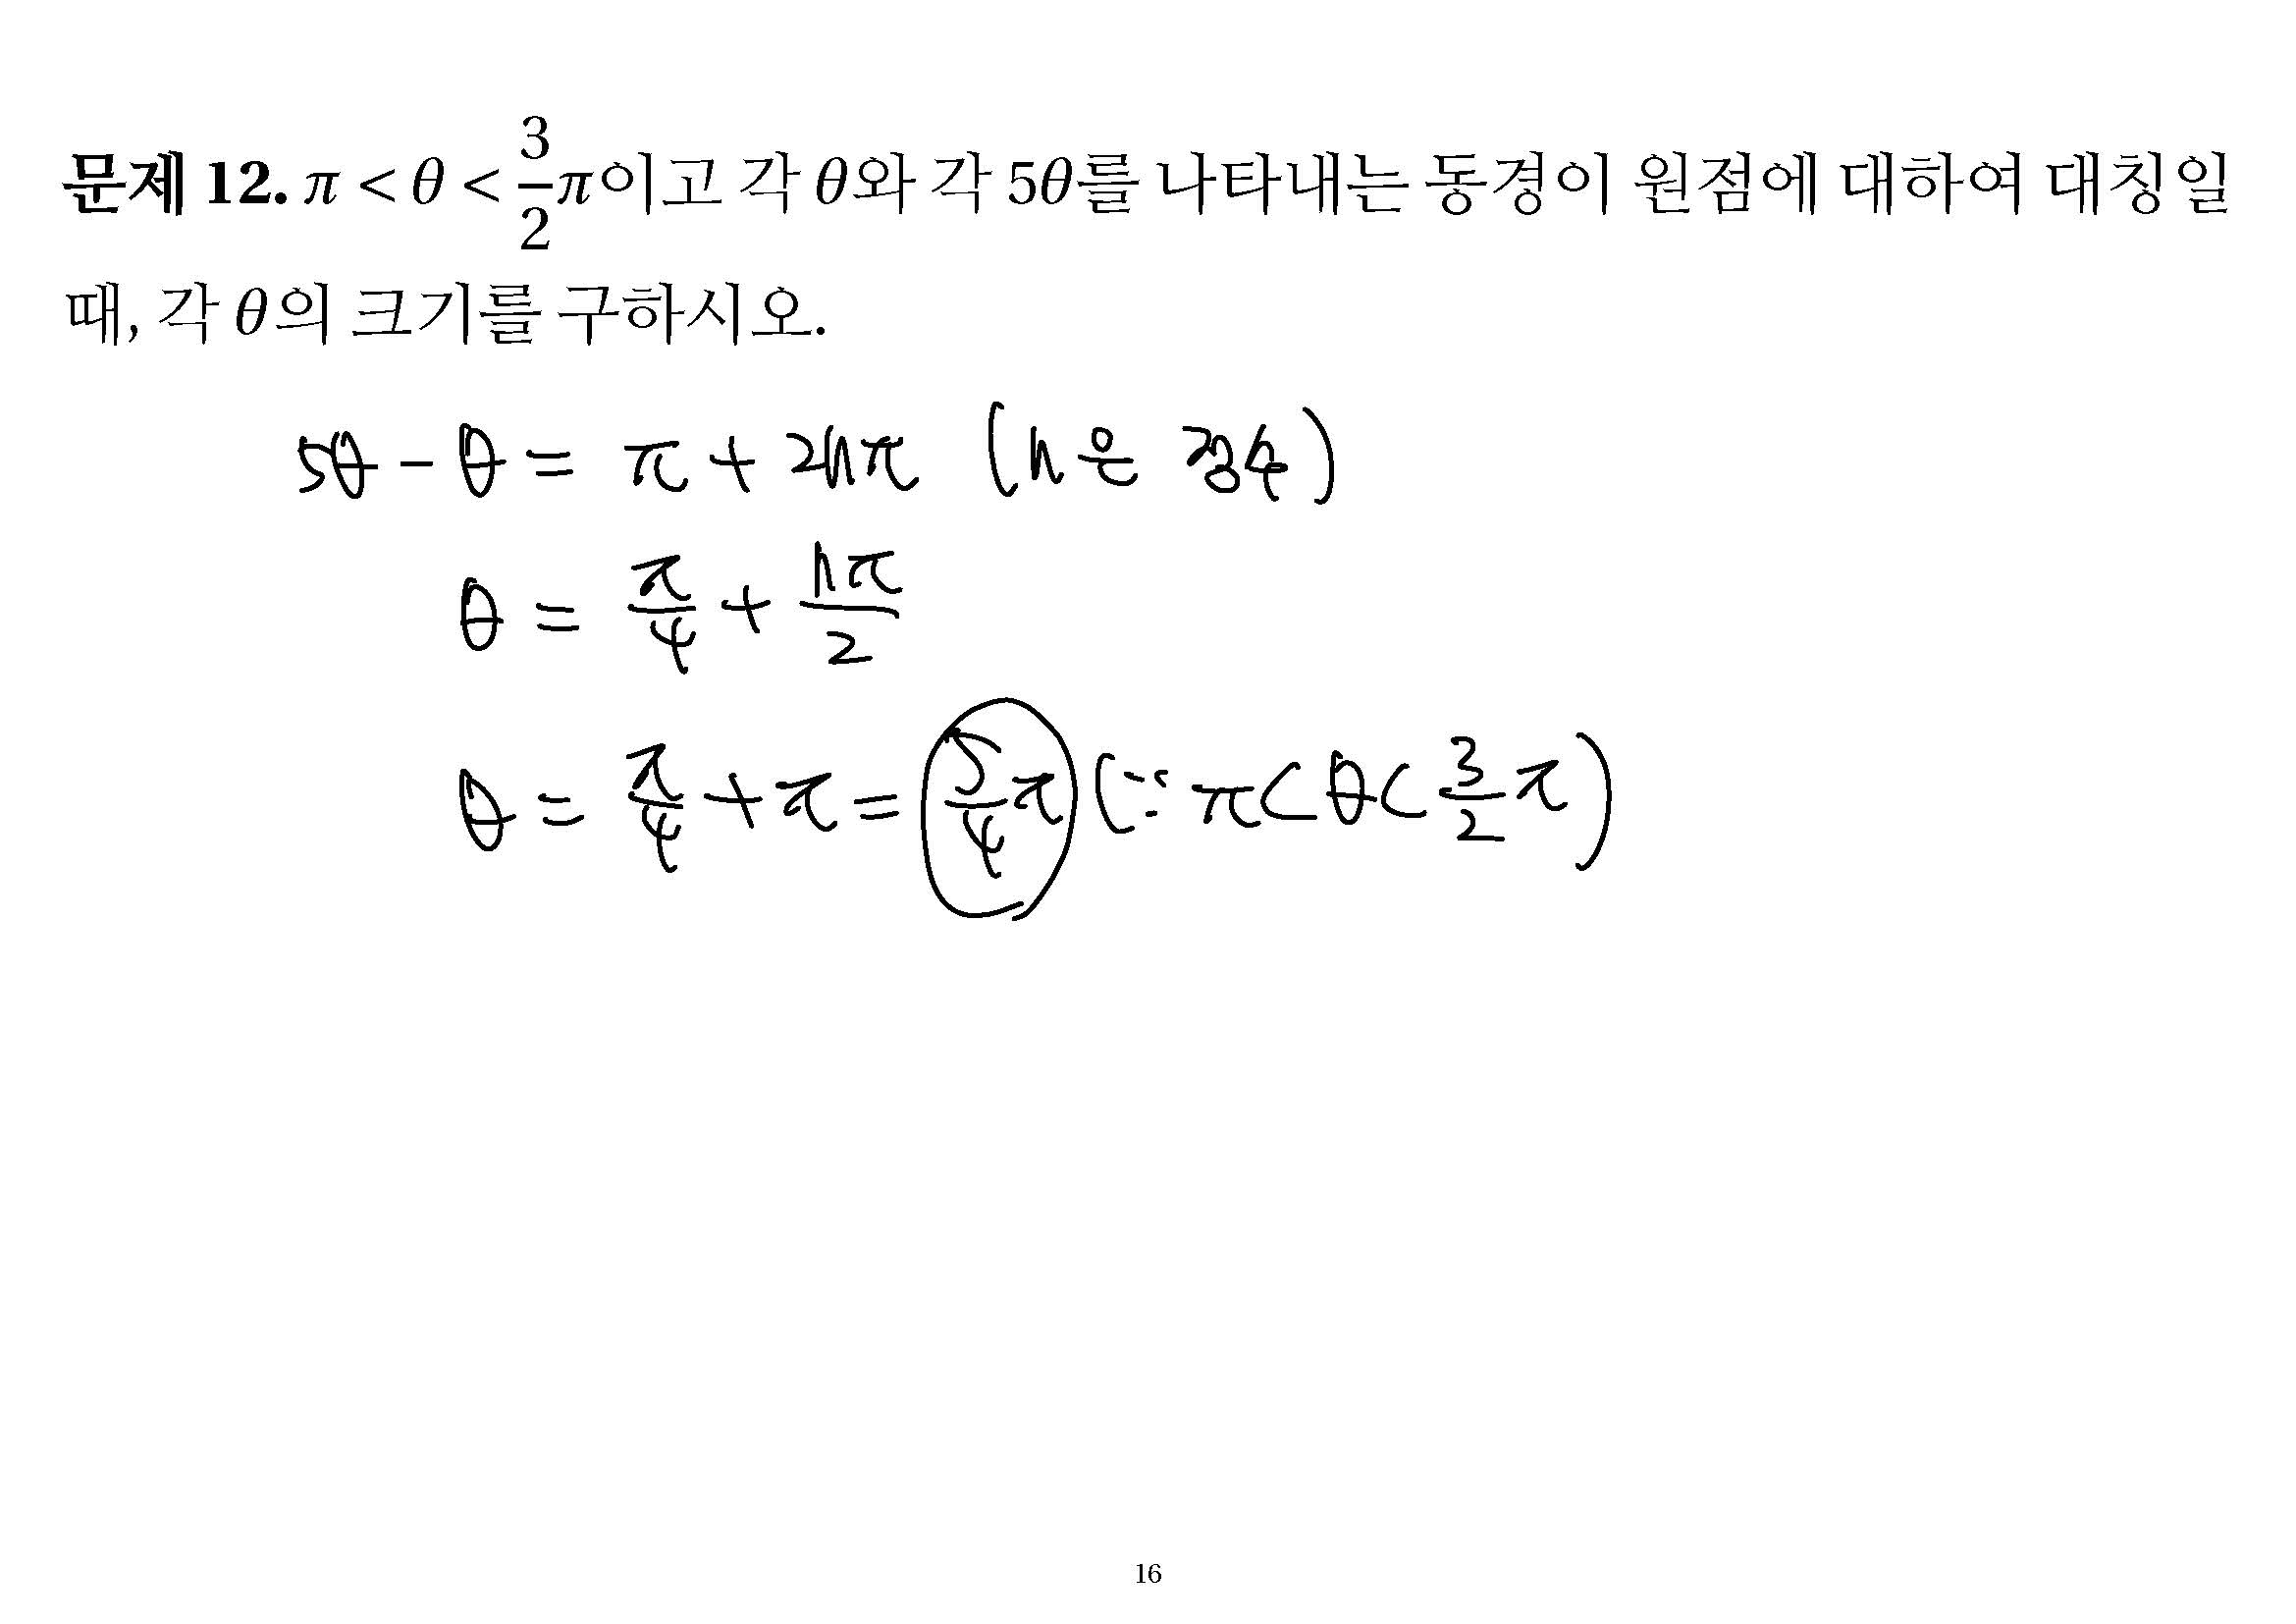 문제 12. π < θ < 3/2 π이고 각 θ와 각 5θ를 나타내는 동경이 원점에 대하여 대칭일
때, 각 θ의 크기를 구하시오.
5θ - θ = π + 2nπ (n은 정수)
θ = π/4 + nπ/2
θ = π/4 + π = 5/4 π (∵ π < θ < 3/2 π)
16